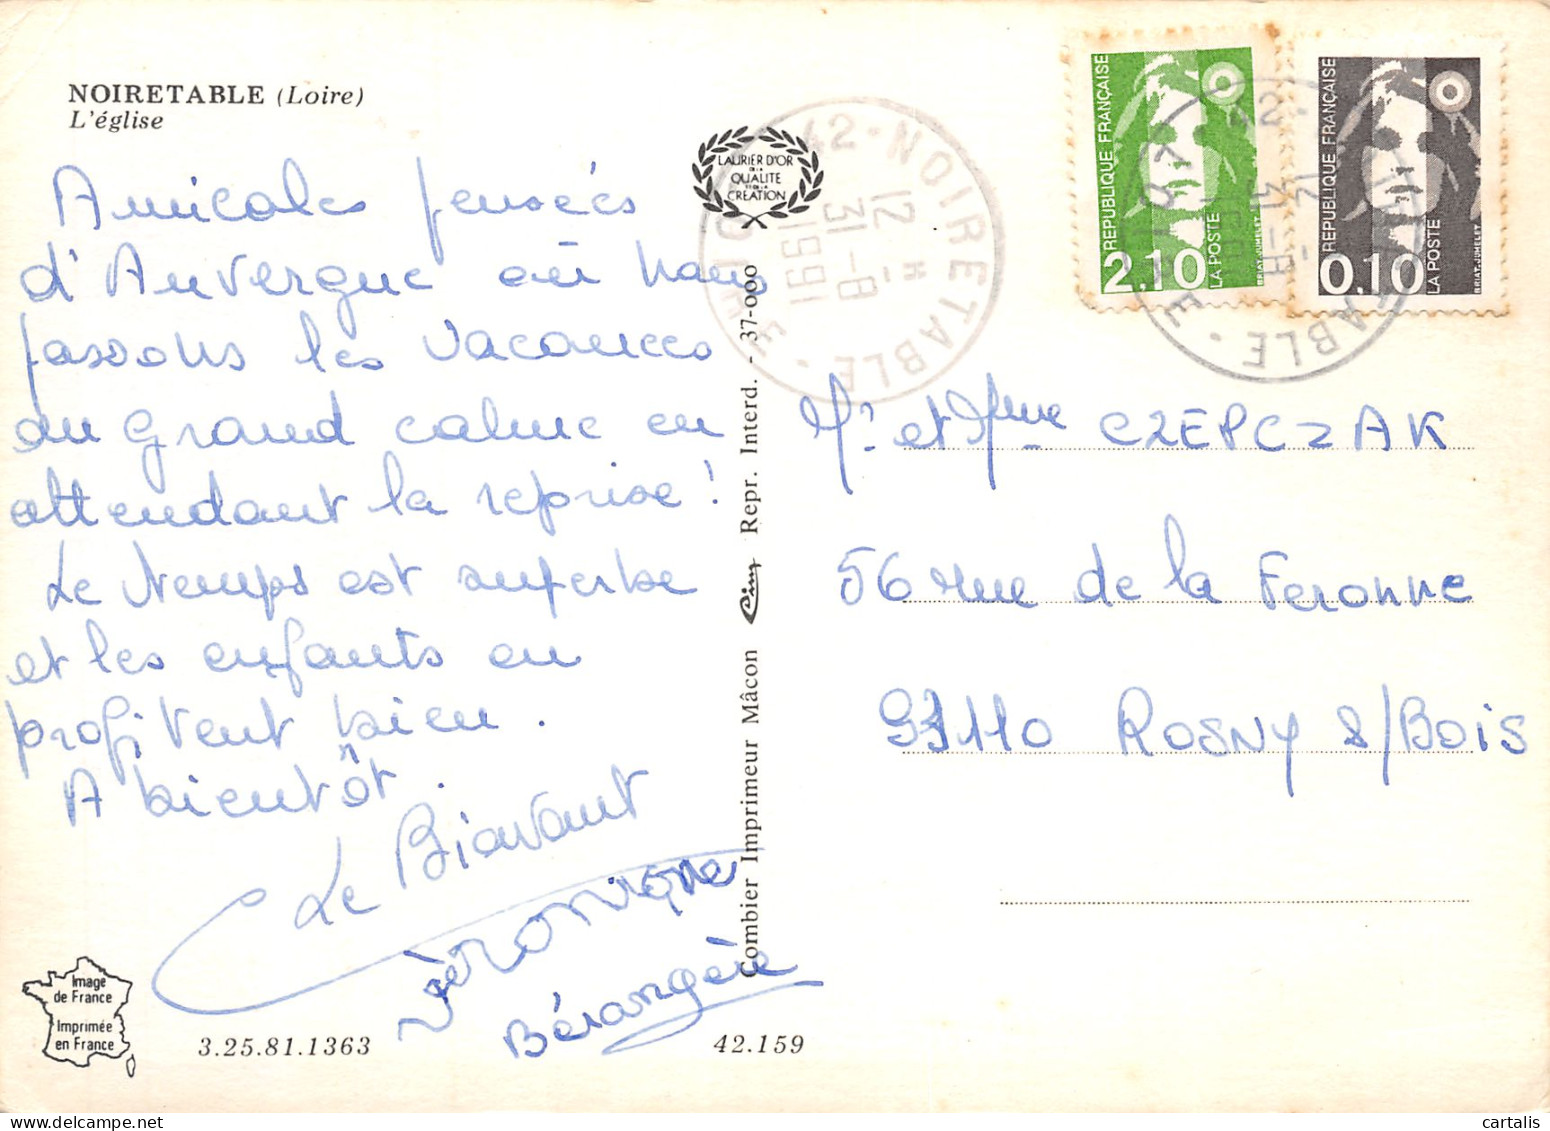 NOIRETABLE (Loire)
L'église
Amicales pensées
d'Auvergne où nous
passons les vacances
au grand calme en
attendant la reprise !
Le temps est superbe
et les enfants en
profitent bien.
A bientôt.
Le Biavant
Véronique
Bérangère
Image
de France
Imprimée
en France
3.25.81.1363
42.159
LAURIER D'OR
DE LA
QUALITE
ET DE LA
CREATION
Combier Imprimeur Mâcon Cim Repr. Interd. - 37-000
42-NOIRETABLE
12 H
31-8
1991
LOIRE
REPUBLIQUE FRANÇAISE
2,10
LA POSTE
BRIAT-JUMELET
REPUBLIQUE FRANÇAISE
0,10
LA POSTE
BRIAT-JUMELET
Mr et Mme CZEPCZAK
56 rue de la Feronne
93110 ROSNY S/BOIS
cartalis